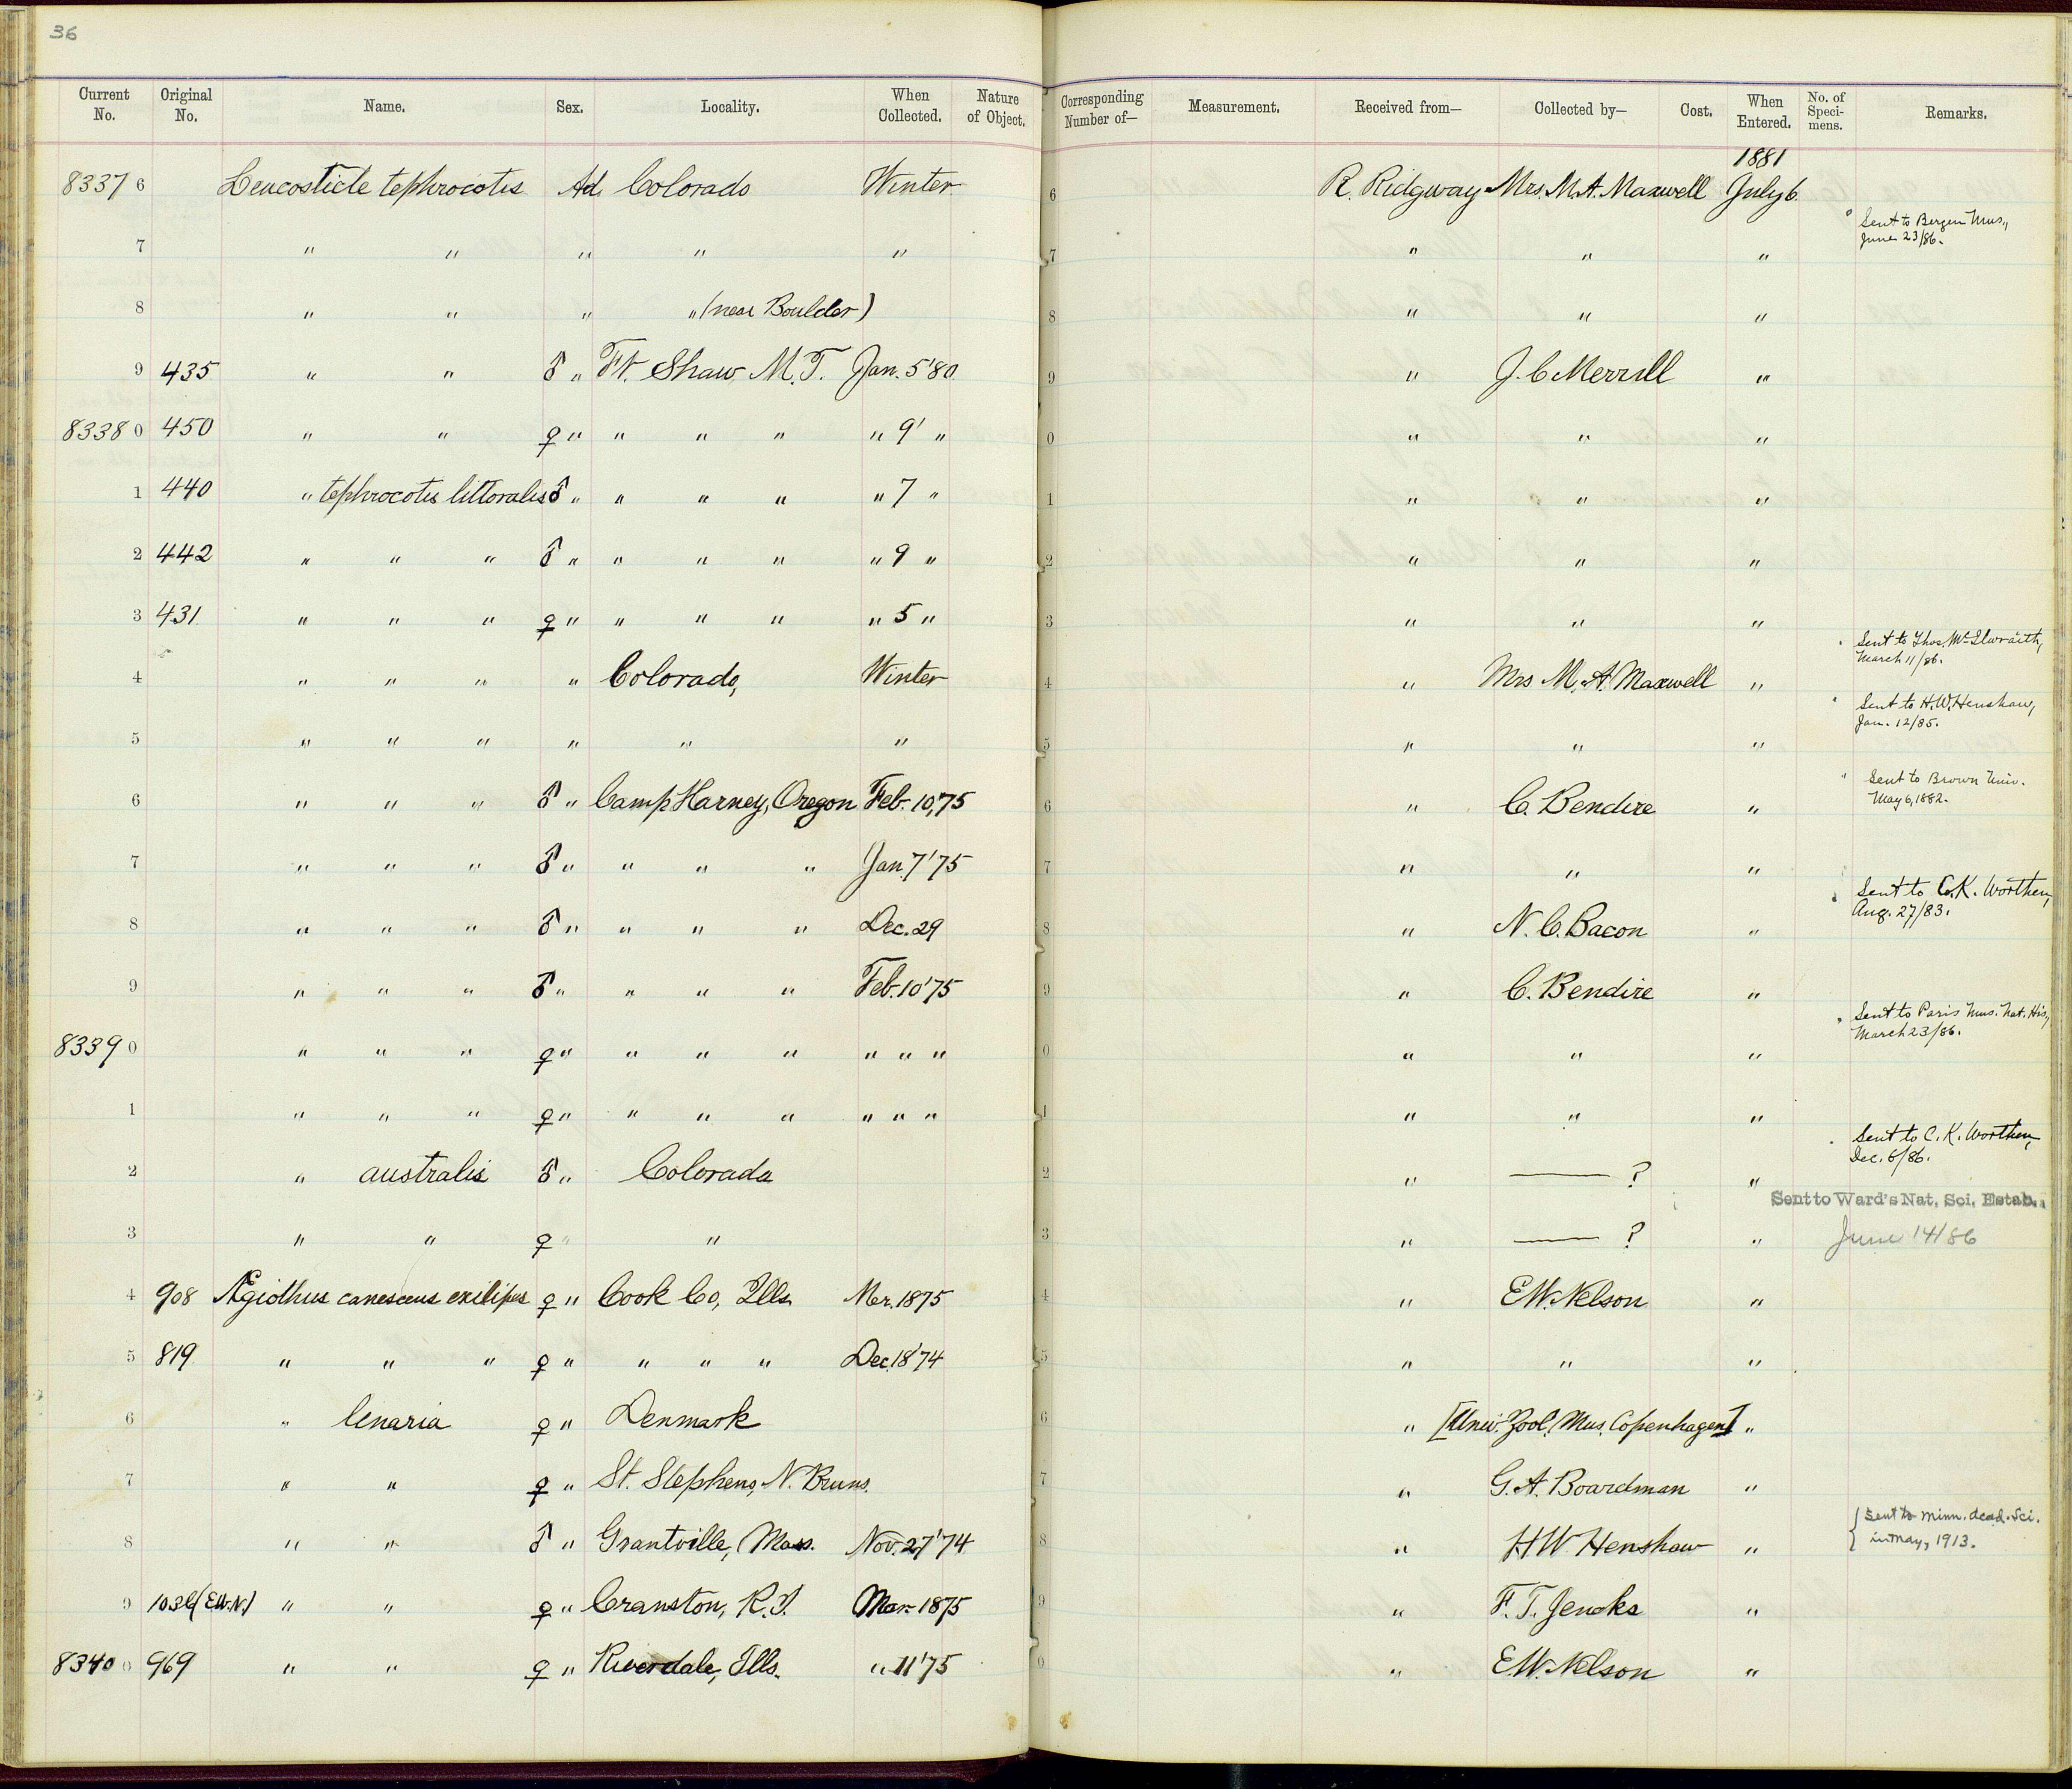 36
Current No. Original No. Name. Sex. Locality. When Collected. Nature of Object. Corresponding Number of— Measurement. Received from— Collected by— Cost. When Entered. No. of Speci-mens. Remarks.
1881
8337 6 Leucosticte tephrocotis Ad. Colorado Winter 6 R. Ridgway Mrs. M.A. Maxwell July 6.
Sent to Bergen Mus., June 23/86.
7 " " " " " 7 " " "
8 " " " " (near Boulder) 8 " " "
9 435 " " ♂ " Ft. Shaw M.T. Jan. 5 '80 9 " J. C. Merrill "
8338 0 450 " " ♀ " " " " " 9 ' " 0 " " "
1 440 " tephrocotis littoralis ♂ " " " " " 7 " 1 " " "
2 442 " " " ♂ " " " " " 9 " 2 " " "
3 431 " " " ♀ " " " " " 5 " 3 " " "
Sent to Thos. McIlwraith, March 11/86.
4 " " " " Colorado, Winter 4 " Mrs M. A. Maxwell "
Sent to H.W. Henshaw, Jan. 12/85.
5 " " " " " " 5 " " "
Sent to Brown Univ. May 6, 1882.
6 " " " ♂ " Camp Harney, Oregon Feb. 10, '75 6 " C. Bendire "
7 " " " ♂ " " " " Jan. 7 '75 7 " " "
Sent to C.K. Worthen, Aug. 27/83.
8 " " " ♂ " " " " Dec. 29 8 " N. C. Bacon "
9 " " " ♂ " " " " Feb. 10 '75 9 " C. Bendire "
Sent to Paris Mus. Nat. His, March 23/86.
8339 0 " " " ♀ " " " " " " " 0 " " "
1 " " " ♀ " " " " " " " 1 " " "
Sent to C. K. Worthen, Dec. 6/86.
2 " australis ♂ " Colorado 2 " —— ? "
Sent to Ward's Nat. Sci. Estab.
3 " " ♀ " " 3 " —— ? " June 14/86
4 908 Ægiothus canescens exilipes ♀ " Cook Co, Ills. Mar. 1875 4 " E.W. Nelson "
5 819 " " " ♀ " " " " Dec. 18 '74 5 " " "
6 " linaria ♀ " Denmark 6 " [Univ. Zool. Mus. Copenhagen] "
7 " " ♀ " St. Stephens, N. Bruns. 7 " G. A. Boardman "
8 " " ♂ " Grantville, Mass. Nov. 27 '74 8 " H W Henshaw " { Sent to Minn. Acad. Sci. in May, 1913.
9 (E.W.N.) " " ♀ " Cranston, R.I. Mar. 1875 9 " F. T. Jencks "
8340 0 969 " " ♀ " Riverdale, Ills. " 11 '75 0 " E.W. Nelson "